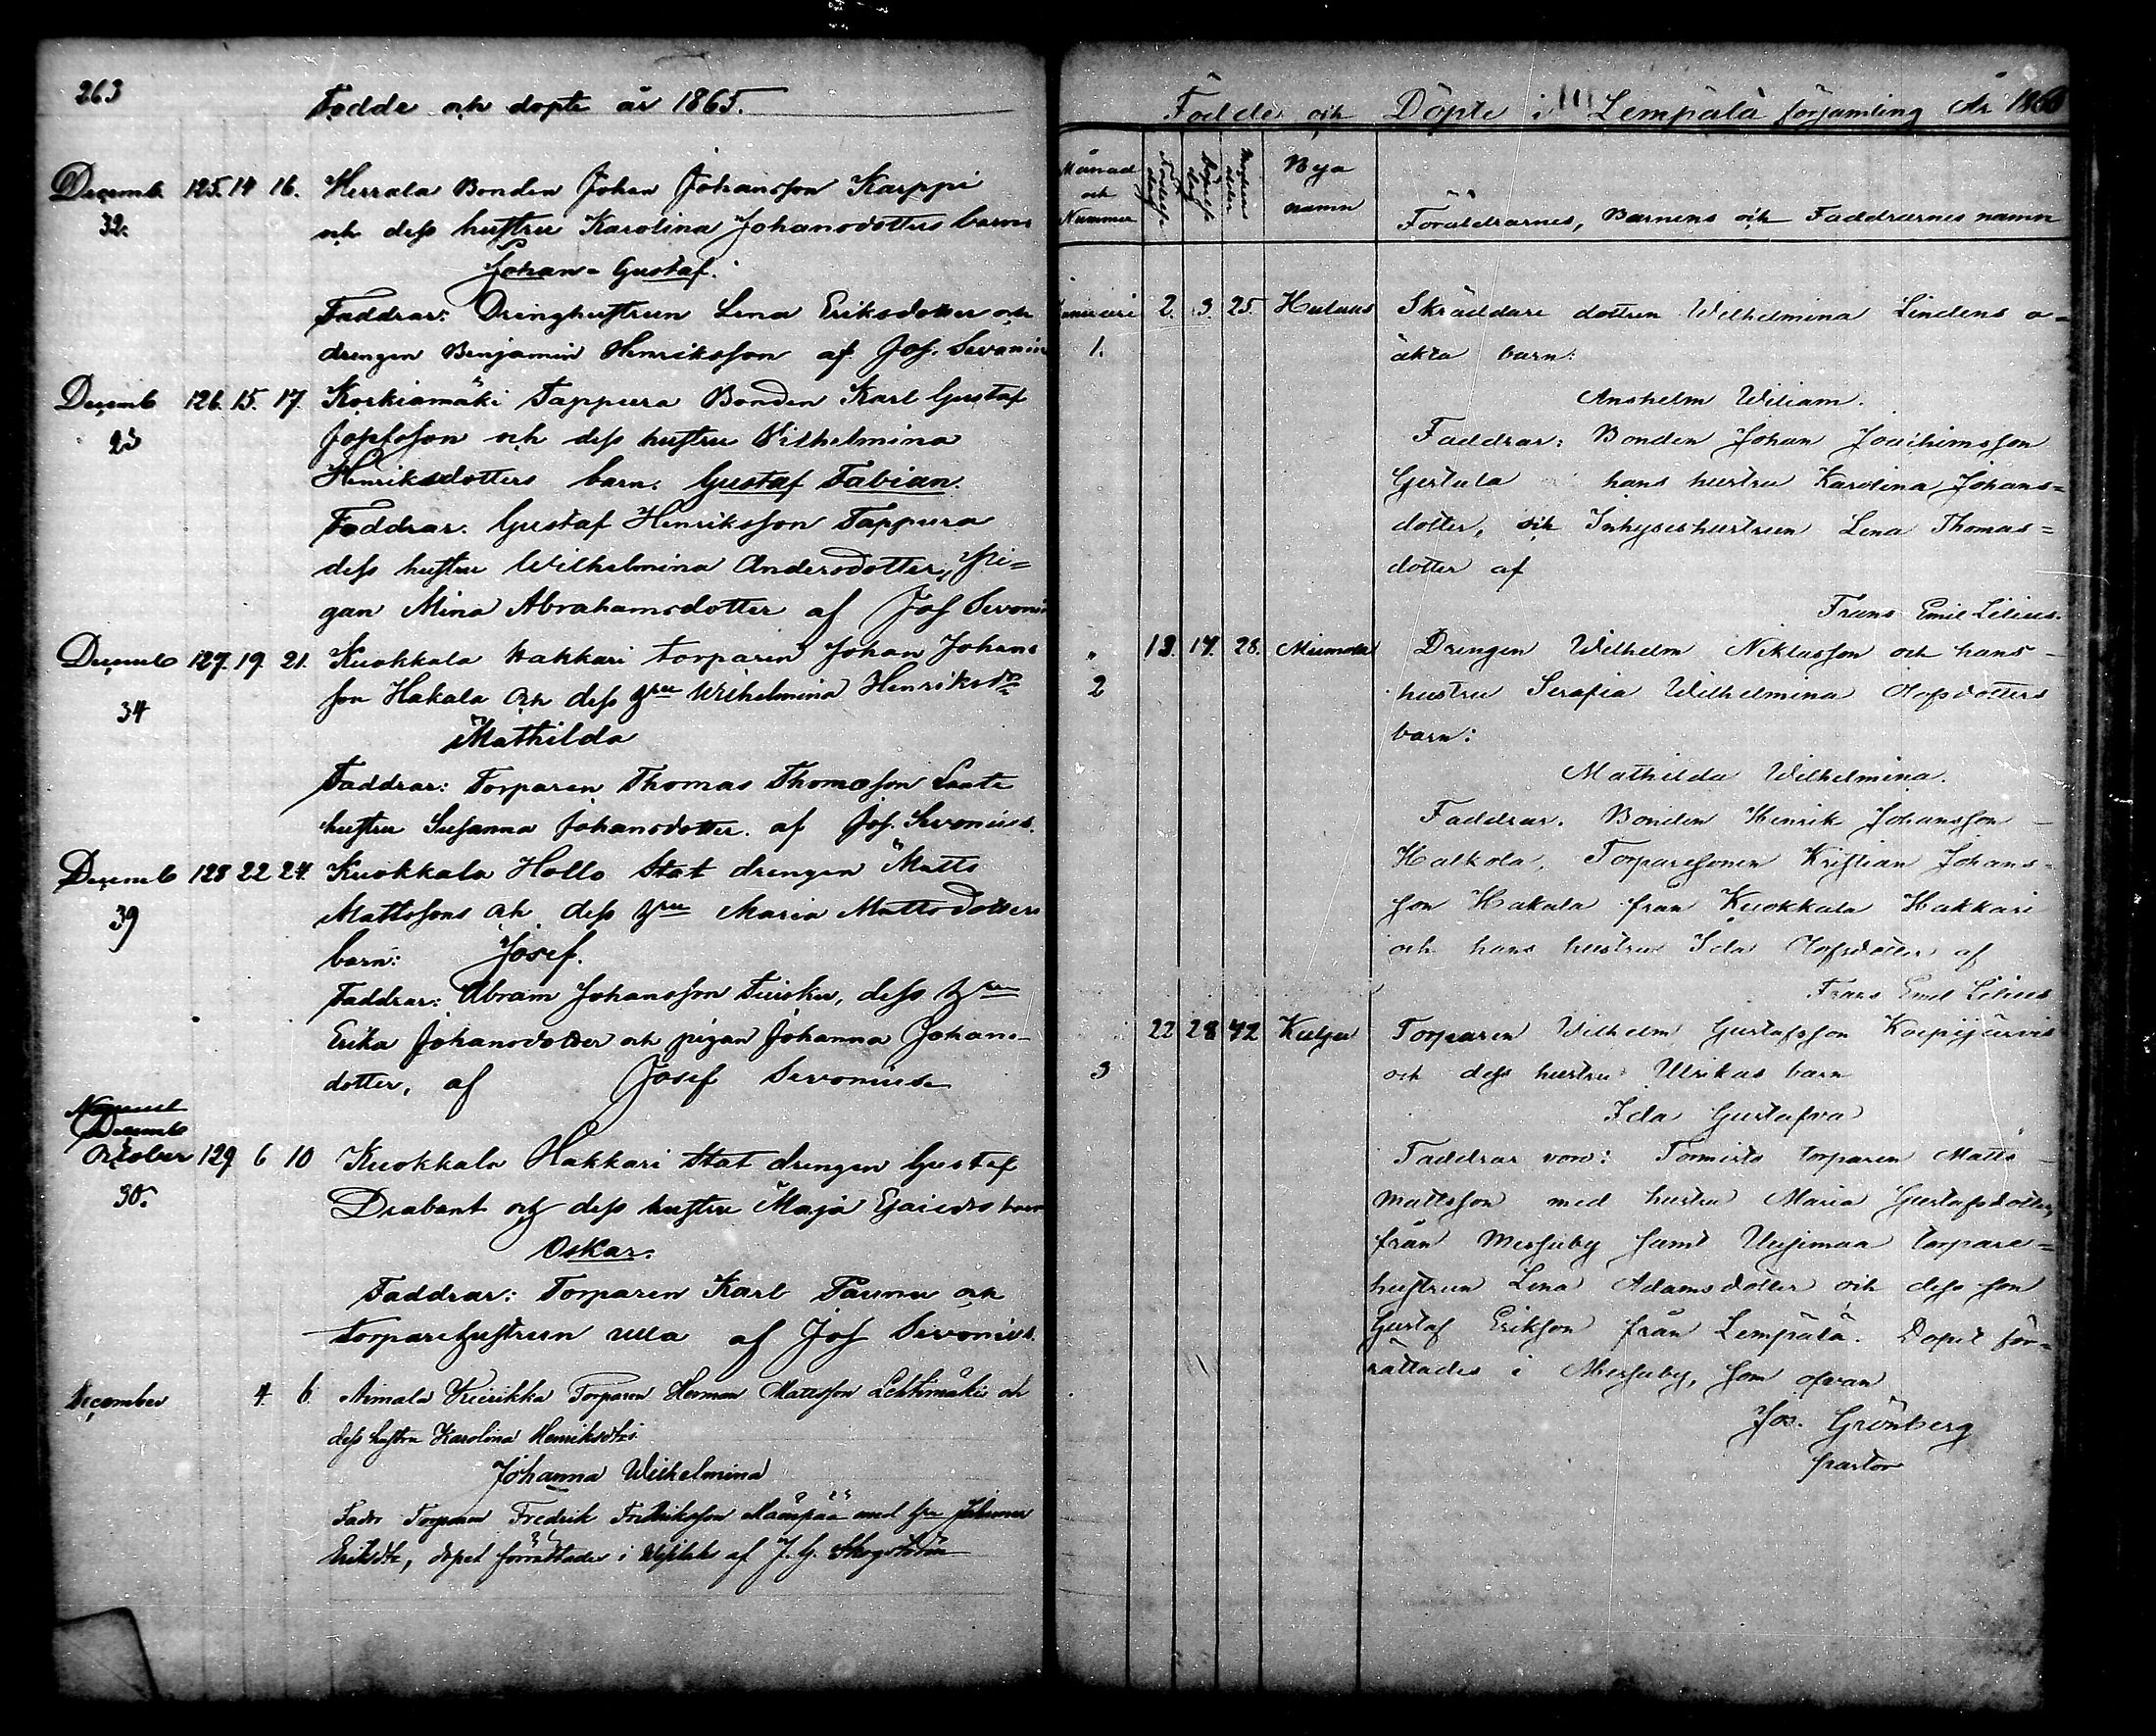 263
Födde och döpte år 1865.
Decemb. 125. 14 16. Herrala Bonden Johan Johansson Karppi
32. och dess hustru Karolina Johansdotters barn
Johan-Gustaf.
Faddrar: Dringhustrun Lena Eriksdotter och
drengen Benjamin Henriksson af Jos. Sevonius
Decemb 126. 15. 17. Korkiamäki Tappura Bonden Karl Gustaf
23 och dess hustru Vilhelmina
Henriksdotters barn. Gustaf Fabian.
Faddrar. Gustaf Henriksson Tappura
dess hustru Wilhelmina Andersdotter, Pi=
gan Mina Abrahamsdotter af Jos Sevonius
Decemb 127. 19. 21. Kuokkala Hakkari torparen Johan Johans
34 son Hakala och dess hru Wilhelmina Henriksdtr
Mathilda
Faddrar: Torparen Thomas Thomasson
hustru Susanna Johansdotter. af Jos. Sevonius.
Decemb 128 22 24. Kuokkala Hollo Stat drengen Matts
39 Mattssons och dess hru Maria Mattsdotters
barn: Josef.
Faddrar: Abram Johansson Tuisku, dess hru
Erika Johansdotter och pigan Johanna Johans-
dotter, af Josef Sevonius
Decemb
October 129 6 10 Kuokkala Hakkari Stat drengen Gustaf
30. Drabant och dess hustru Maja barn
Oskar.
Faddrar: Torparen Karl och
torparehustrun Ulla af Jos Sevonius.
December 4. 6. Torparen Herman Mattsson Lehtimäki och
dess hustru Karolina Henriksdtrs
Johanna Wilhelmina
Fadr Torparen Fredrik Fredriksson med hru Johanna
Eriksdtr, dopet förrättades i af J. G.
Födde och Döpte i Lempälä församling År 1866
Månad och Nummer Födelse dag Döpelse dag Modrens ålder Bya namn Föräldrarnes, Barnens och Faddrarnes namn
Januari 2. 3. 25. Hulaus Skräddare dottren Wilhelmina Lindens o=
1. äkta barn:
Anshelm Wiliam.
Faddrar: Bonden Johan Joachimsson
Gertula hans hustru Karolina Johans=
dotter, och Inhyseshustrun Lena Thomas=
dotter af
Frans Emil Lilius.
" 13. 14. 28. Miemola Drengen Wilhelm Niklasson och hans
2 hustru Serafia Wilhelmina Olofsdotters
barn:
Mathilda Wilhelmina.
Faddrar. Bonden Henrik Johansson
Halkola, Torparesonen Kristian Johans-
son Hakala från Kuokkala Hakkari
och hans hustru Ida Olofsdotter af
Frans Emil Lilius
22 28 42 Kulju Torparen Wilhelm Gustafsson
3 och dess hustru Ulrikas barn
Ida Gustafva
Faddrar voro: Tormisto torparen Matts
Mattsson med hustru Maria Gustafsdotter,
från Messuby samt Uusimaa torpare=
hustrun Lena Adamsdotter och dess son
Gustaf Eriksson från Lempälä. Dopet för=
rättades i Messuby, som ofvan
Jos. Grönberg
pastor